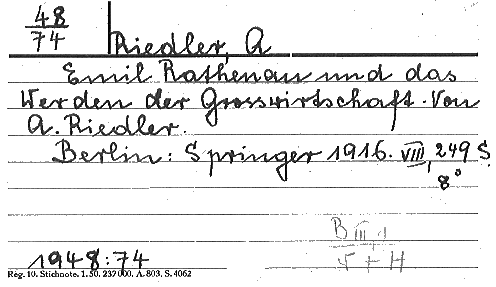 48
74
Riedler, A
Emil Rathenau und das
Werden der Grosswirtschaft. Von
A. Riedler.
Berlin: Springer 1916. VIII, 249 S.
8°
B III, 1
1948:74
Reg. 10. Stichnote. 1. 50. 232000. A. 803. S. 4062